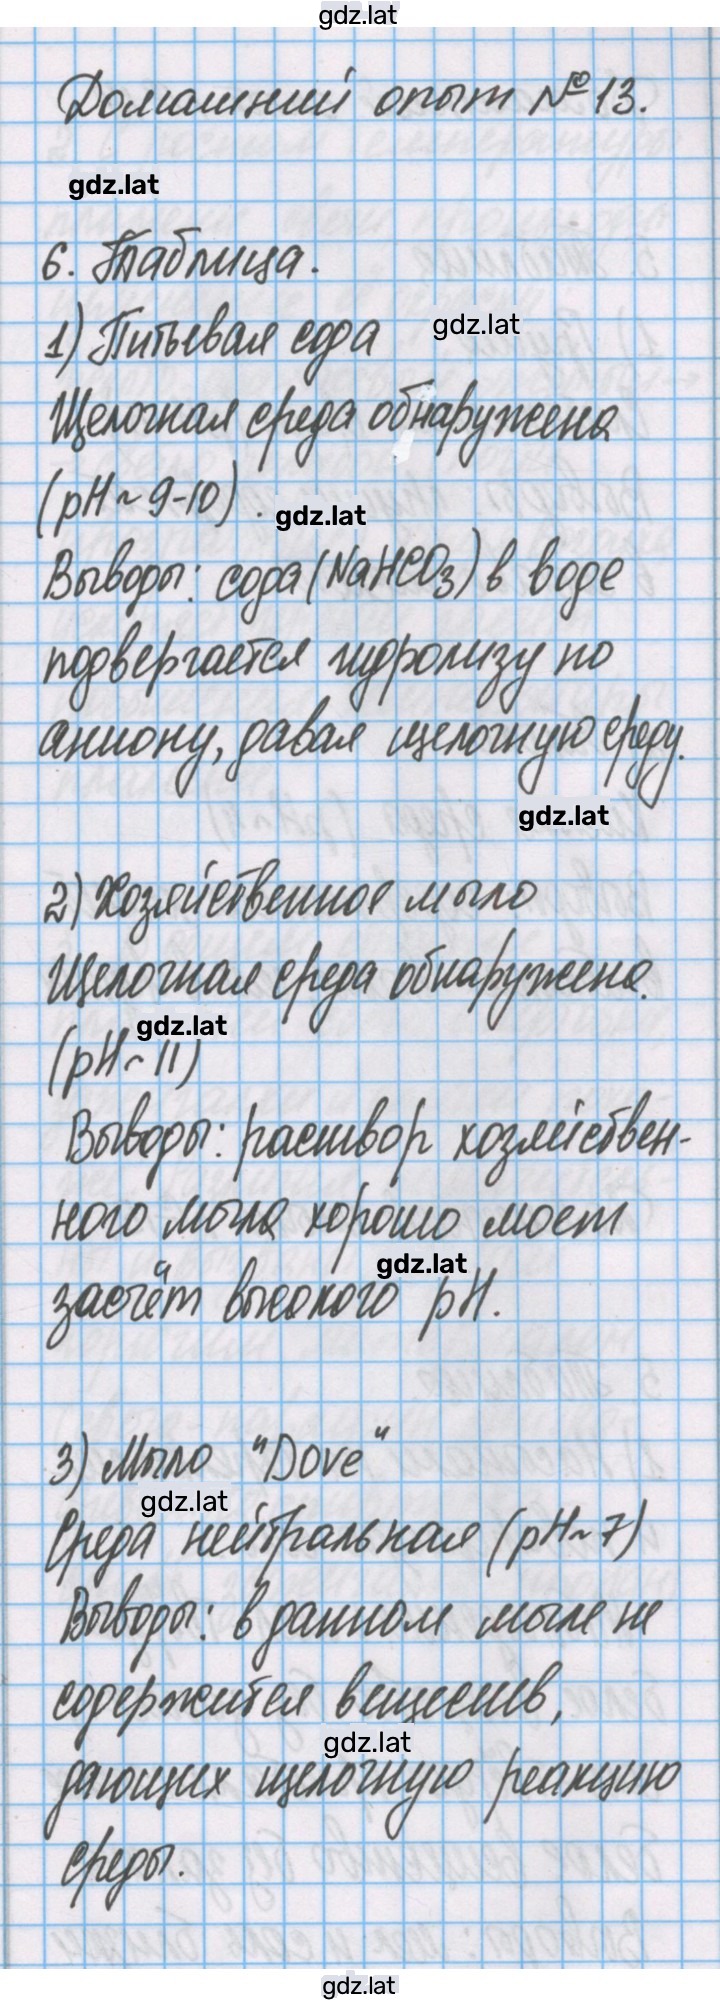 gdz.lat
Домашний опыт №13.
gdz.lat
6. Таблица.
gdz.lat
1) Питьевая сода
Щелочная среда обнаружена
(pH ~ 9-10).
gdz.lat
Выводы: сода (NaHCO3) в воде
подвергается гидролизу по
аниону, давая щелочную среду.
gdz.lat
2) Хозяйственное мыло
Щелочная среда обнаружена.
gdz.lat
(pH ~ 11)
Выводы: раствор хозяйствен-
ного мыла хорошо моет
gdz.lat
засчёт высокого pH.
3) Мыло "Dove"
gdz.lat
Среда нейтральная (pH ~ 7)
Выводы: в данном мыле не
содержится веществ,
gdz.lat
дающих щелочную реакцию
среды.
gdz.lat